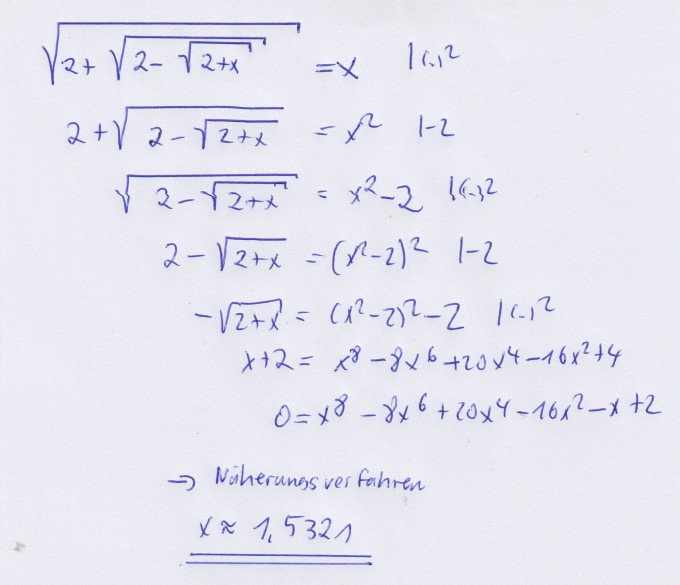 √(2+√(2-√(2+x))) = x |(..)²
2+√(2-√(2+x)) = x² |-2
√(2-√(2+x)) = x²-2 |(..)²
2-√(2+x) = (x²-2)² |-2
-√(2+x) = (x²-2)²-2 |(..)²
x+2 = x⁸-8x⁶+20x⁴-16x²+4
0=x⁸-8x⁶+20x⁴-16x²-x+2
→ Näherungsverfahren
x≈1,5321